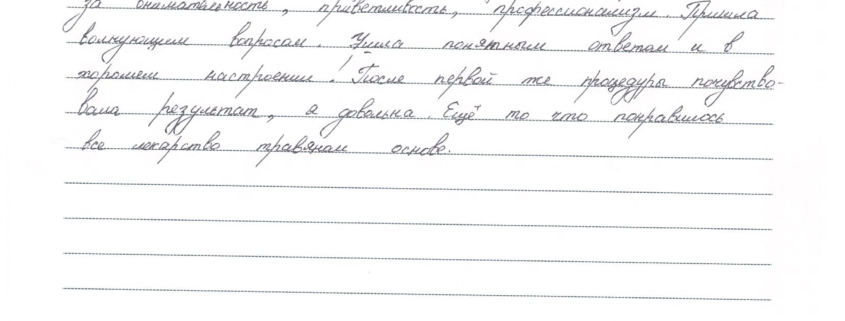 за внимательность, приветливость, профессионализм. Пришла
волнующим вопросам. Ушла понятным ответом и в
хорошем настроении! После первой же процедуры почувство-
вала результат, я довольна. Ещё то что понравилось
все лекарство травяном основе.